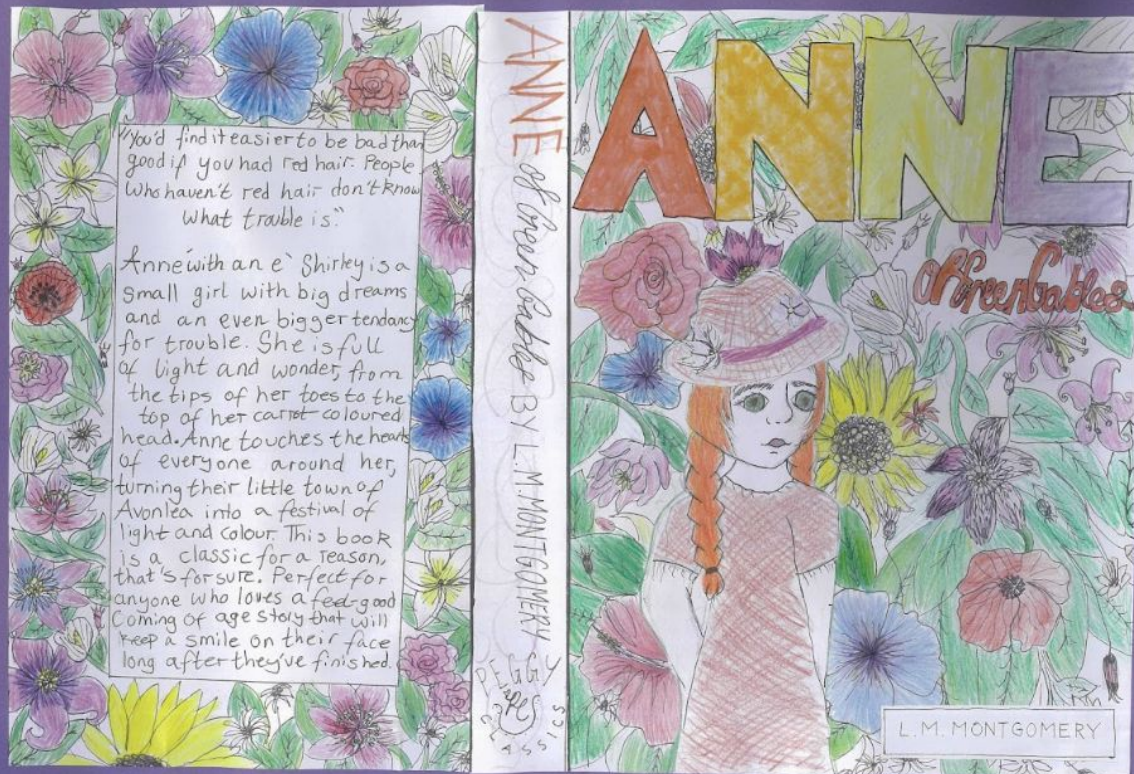 "You'd find it easier to be bad than
good if you had red hair. People
Who haven't red hair don't know
what trouble is."
Anne 'with an e' Shirley is a
small girl with big dreams
and an even bigger tendancy
for trouble. She is full
of light and wonder, from
the tips of her toes to the
top of her carrot coloured
head. Anne touches the hearts
of everyone around her,
turning their little town of
Avonlea into a festival of
light and colour. This book
is a classic for a reason,
that's for sure. Perfect for
anyone who loves a feel-good
Coming of age story that will
keep a smile on their face
long after they've finished.
ANNE of Green Gable BY L.M. MONTGOMERY
PEGGY
CLASSICS
ANNE
of Green Gables
L.M. MONTGOMERY